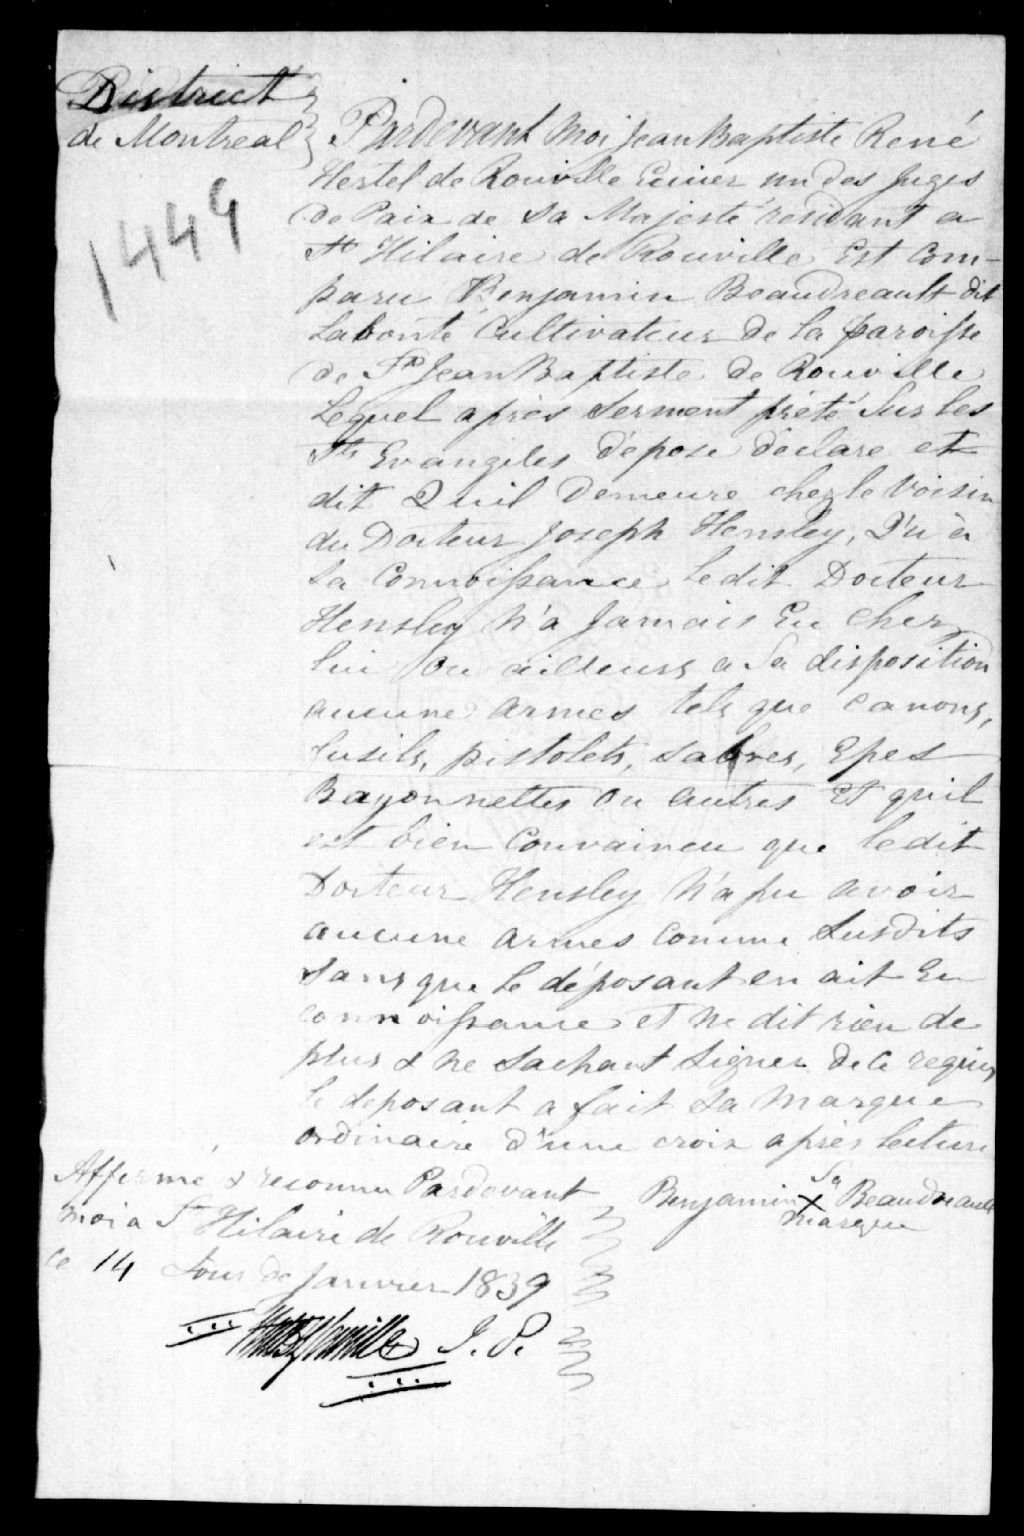 District
de Montreal
1449
Pardevant Moi Jean Baptiste René
Hertel de Rouville Ecuier un des Juges
de Paix de Sa Majesté residant a
St Hilaire de Rouville Est Com-
paru Benjamin Beaudreault dit
Labonté Cultivateur de la paroisse
de St Jean Baptiste de Rouville
Lequel après Serment prété Sur les
Sts Evangiles dépose déclare et
dit Quil Demeure chez le Voisin
du Docteur Joseph Hensley, Qu'à
Sa Connoissance ledit Docteur
Hensley N'a Jamais Eu Chez
lui Ou ailleurs a Sa disposition
aucune armes tels que Canons,
fusils, pistolets, Sabres, Epes
Bayonnettes Ou Autres Et quil
est bien Convaincu que ledit
Docteur Hensley N'a pu avoir
aucune armes Comme Susdits
Sans que le déposant en ait Eu
Connoissance et Ne dit rien de
plus & Ne Sachant Signer de Ce requis
le deposant a fait Sa Marque
Ordinaire d'une croix après lecture
Affermé & reconnu Pardevant
moi a St Hilaire de Rouville
Ce 14 Jour de Janvier 1839
Sa
Benjamin X Beaudreault
marque
J. P.